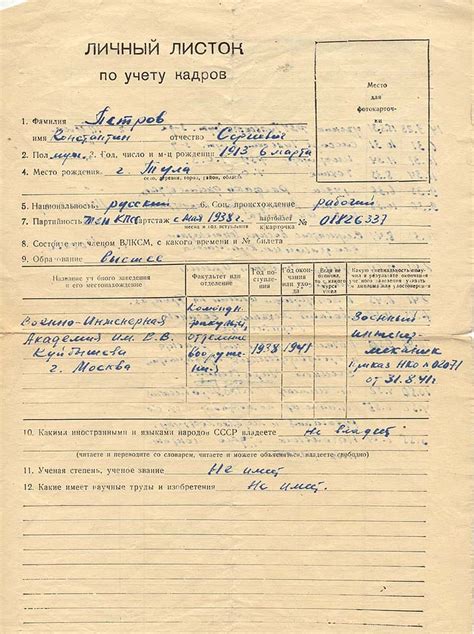 ЛИЧНЫЙ ЛИСТОК
по учету кадров
Место
для
фотокарточ-
ки
1. Фамилия Петров
имя Константин отчество Сергеевич
2. Пол муж. 3. Год, число и м-ц рождения 1913 6 марта
4. Место рождения г. Тула
село, деревня, город, район, область
5. Национальность русский 6. Соц. происхождение рабочий
7. Партийность член КПСС партстаж с мая 1938 г. партбилет № 01826337
8. Состоите ли членом ВЛКСМ, с какого времени и № билета
9. Образование высшее
Название уч бного заведения и его местонахождение
Факультет или отделение
Год по-ступле-ния
Год окон-чания или ухо-да
Если не окончил, то с какого курса ушел
Какую специальность получил в результате окончания учебного заведения, указать № диплома или удостоверения
Военно-Инженерная Академия им. В.В. Куйбышева г. Москва
отделение
1938
1941
Военный инженер механик
приказ НКО
от 31.8.41 г.
10. Какими иностранными и языками народов СССР владеете Не владеет
(читаете и переводите со словарем, читаете и можете объясняться, владеете свободно)
11. Ученая степень, ученое звание Не имеет.
12. Какие имеет научные труды и изобретения Не имеет.